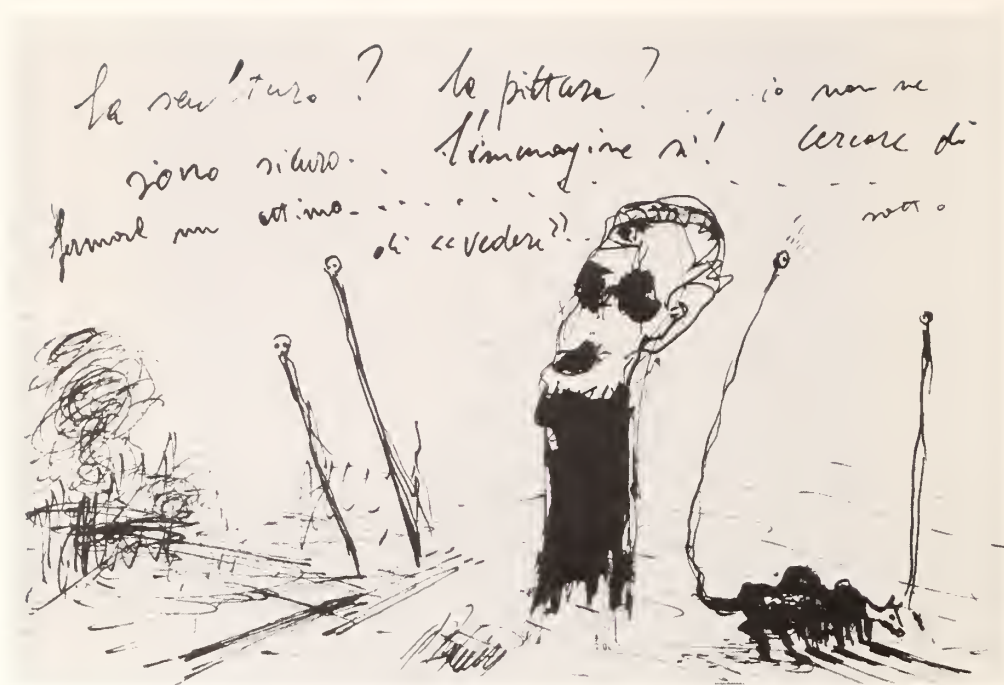 la scultura? la pittura? .....io non ne
sono sicuro.. l'immagine sì! cercare di
fermare un attimo..............
di «vedere»... sotto